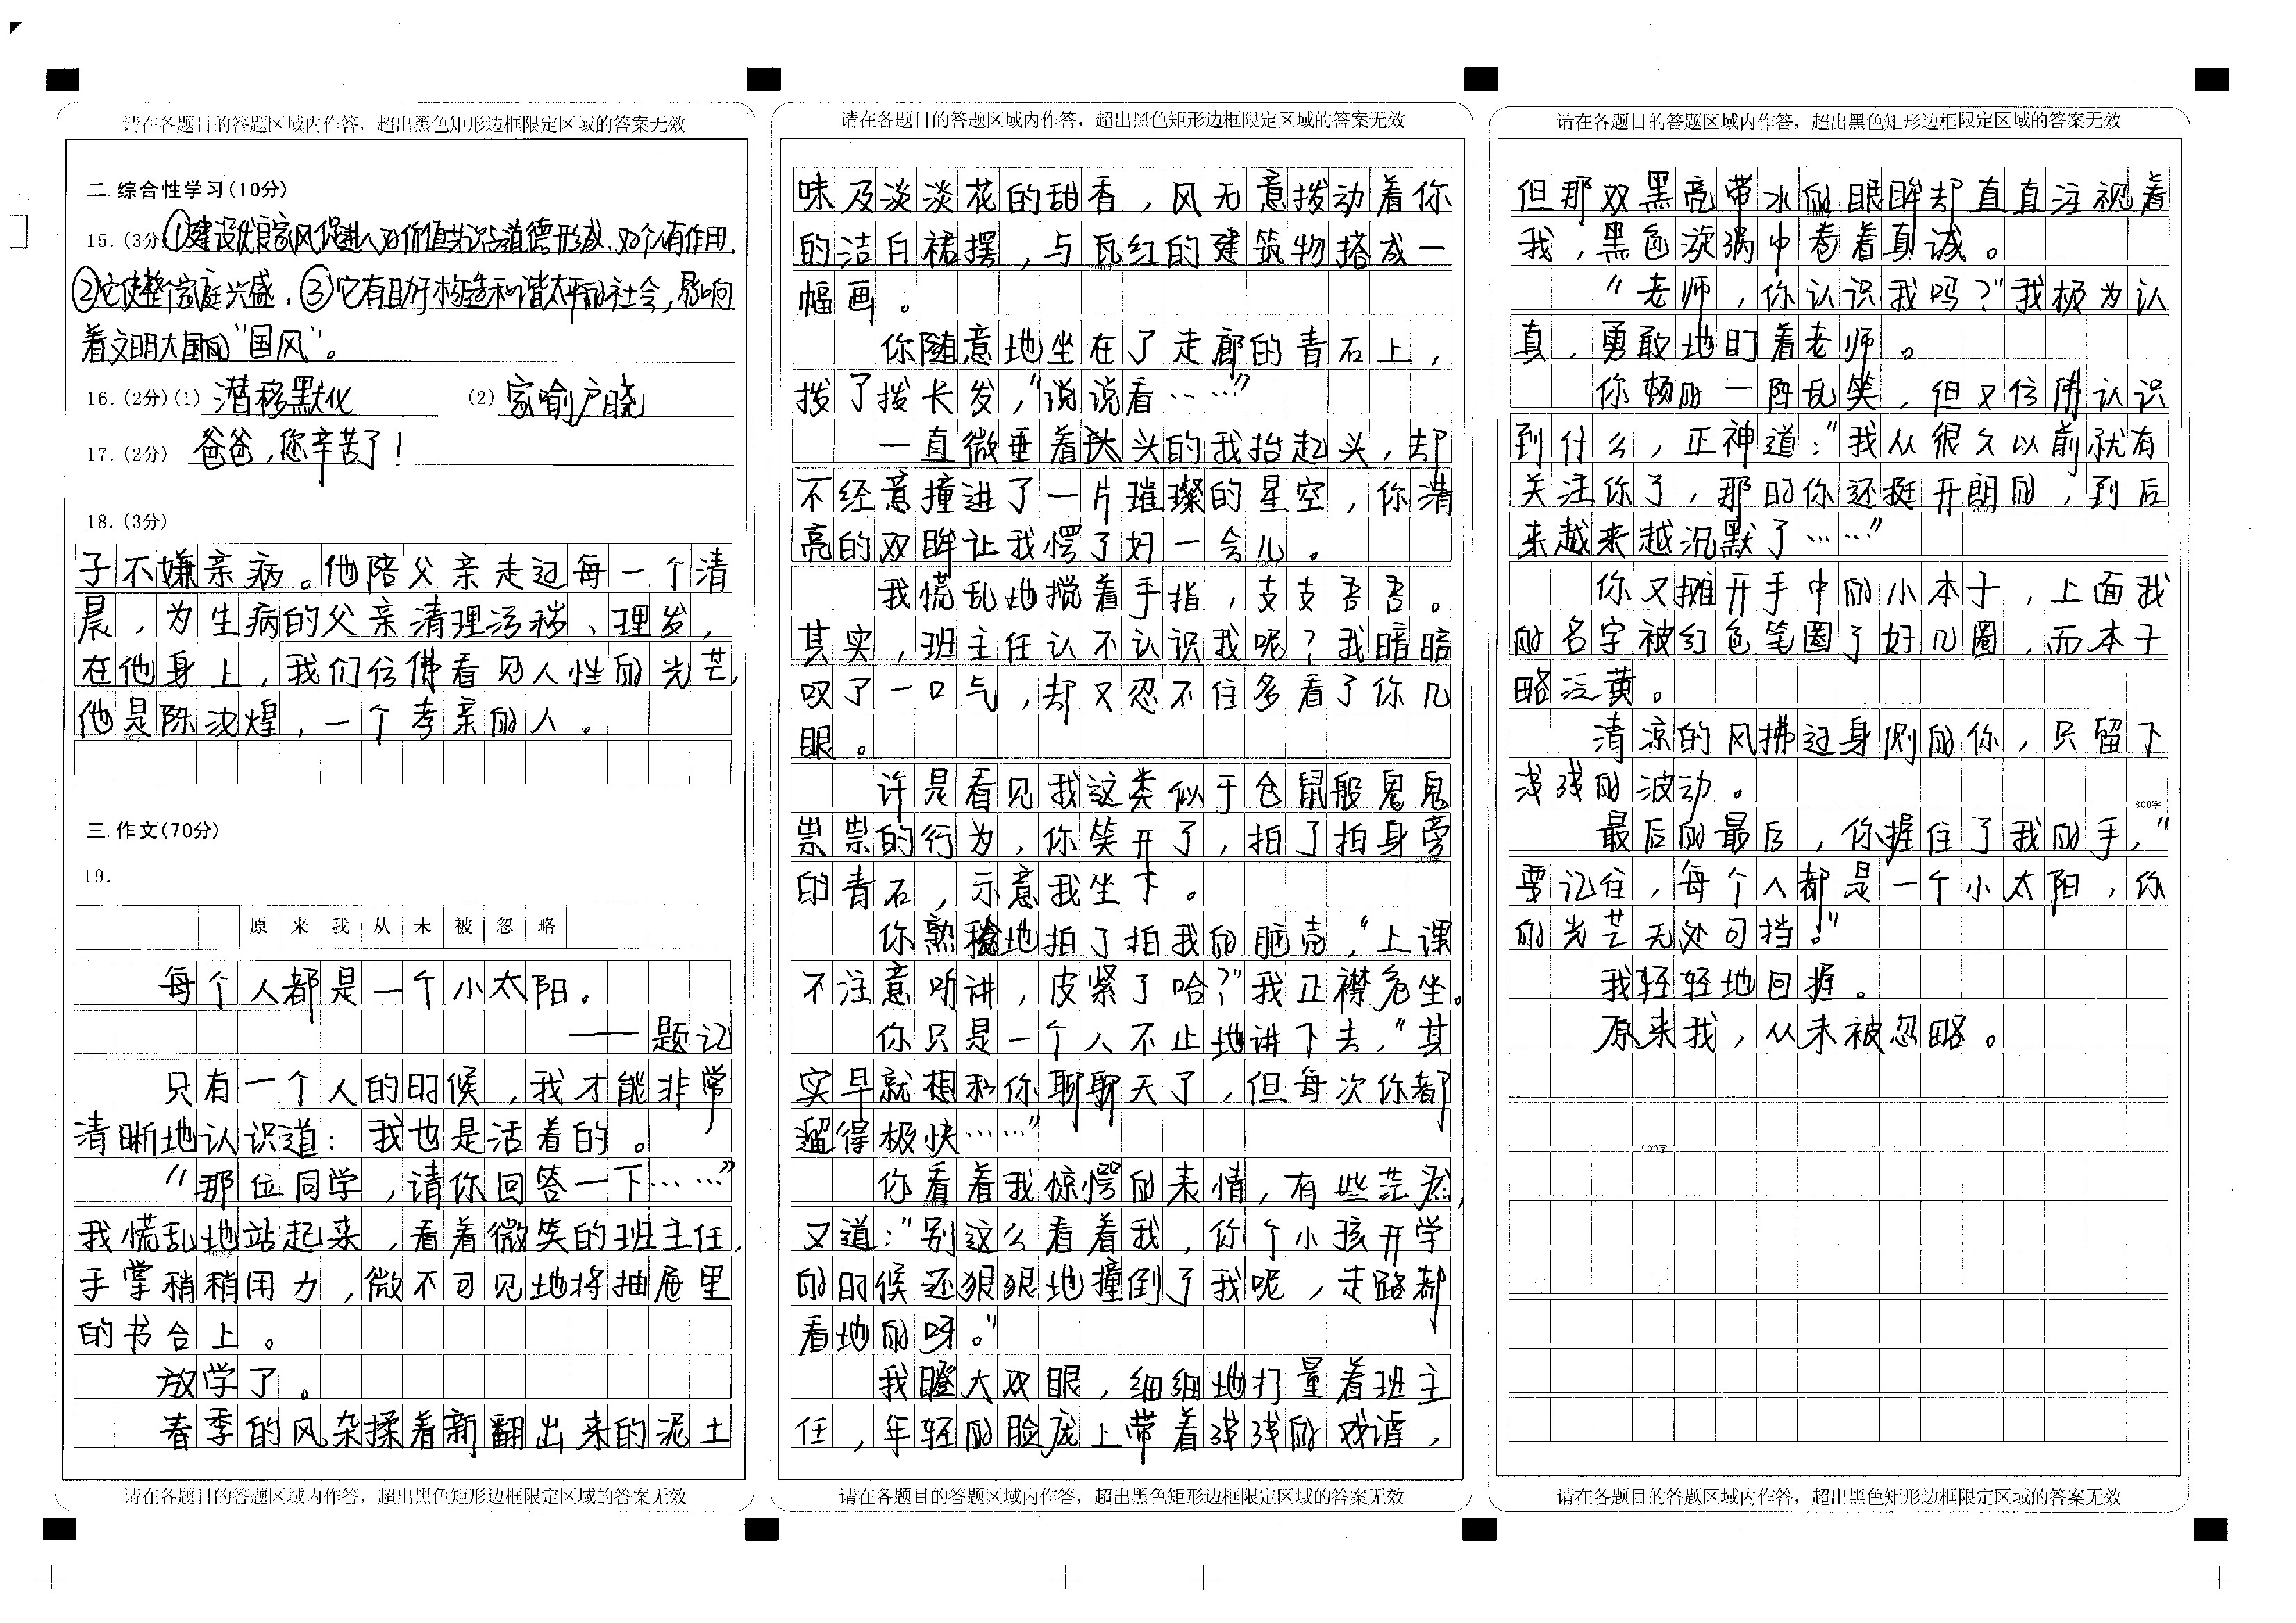 请在各题目的答题区域内作答，超出黑色矩形边框限定区域的答案无效
二.综合性学习(10分)
15.(3分)①建设优良家风促进人对价值共识与道德形成，对个人有作用.
②它使整个家庭兴盛.③它有助于构造和谐太平的社会,影响
着文明大国的"国风"。
16.(2分)(1) 潜移默化 (2) 家喻户晓
17.(2分) 爸爸,您辛苦了!
18.(3分)
子不嫌亲病。他陪父亲走过每一个清
晨，为生病的父亲清理污秽、理发，
在他身上，我们仿佛看见人性的光芒，
他是陈沈煌，一个孝亲的人。
三.作文(70分)
19.
原来我从未被忽略
每个人都是一个小太阳。
——题记
只有一个人的时候，我才能非常
清晰地认识道：我也是活着的。
"那位同学，请你回答一下……"
100字
我慌乱地站起来，看着微笑的班主任，
手掌稍稍用力，微不可见地将抽屉里
的书合上。
放学了。
春季的风杂揉着新翻出来的泥土
请在各题目的答题区域内作答，超出黑色矩形边框限定区域的答案无效
请在各题目的答题区域内作答，超出黑色矩形边框限定区域的答案无效
味及淡淡花的甜香，风无意拨动着你
的洁白裙摆，与瓦红的建筑物搭成一
200字
幅画。
你随意地坐在了走廊的青石上，
拨了拨长发，"说说看……"
一直微垂着头的我抬起头，却
不经意撞进了一片璀璨的星空，你清
亮的双眸让我愣了好一会儿。
300字
我慌乱地搅着手指，支支吾吾。
其实，班主任认不认识我呢？我暗暗
叹了一口气，却又忍不住多看了你几
眼。
许是看见我这类似于仓鼠般鬼鬼
祟祟的行为，你笑开了，拍了拍身旁
400字
的青石，示意我坐下。
你熟稔地拍了拍我的脑壳，"上课
不注意听讲，皮紧了哈？"我正襟危坐。
你只是一个人不止地讲下去，"其
实早就想和你聊聊天了，但每次你都
遛得极快……"
你看着我惊愕的表情，有些茫然，
500字
又道："别这么看着我，你个小孩开学
的时候还狠狠地撞倒了我呢，走路都
看地的呀。"
我瞪大双眼，细细地打量着班主
任，年轻的脸庞上带着浅浅的戏谑，
请在各题目的答题区域内作答，超出黑色矩形边框限定区域的答案无效
请在各题目的答题区域内作答，超出黑色矩形边框限定区域的答案无效
但那双黑亮带水的眼眸却直直注视着
600字
我，黑色漩涡中卷着真诚。
"老师，你认识我吗？"我极为认
真，勇敢地盯着老师。
你顿的一阵乱笑，但又仿佛认识
到什么，正神道："我从很久以前就有
关注你了，那时你还挺开朗的，到后
700字
来越来越沉默了……"
你又摊开手中的小本子，上面我
的名字被红色笔圈了好几圈，而本子
略泛黄。
清凉的风拂过身侧的你，只留下
浅浅的波动。
800字
最后的最后，你握住了我的手，"
要记住，每个人都是一个小太阳，你
的光芒无处可挡。"
我轻轻地回握。
原来我，从未被忽略。
900字
请在各题目的答题区域内作答，超出黑色矩形边框限定区域的答案无效